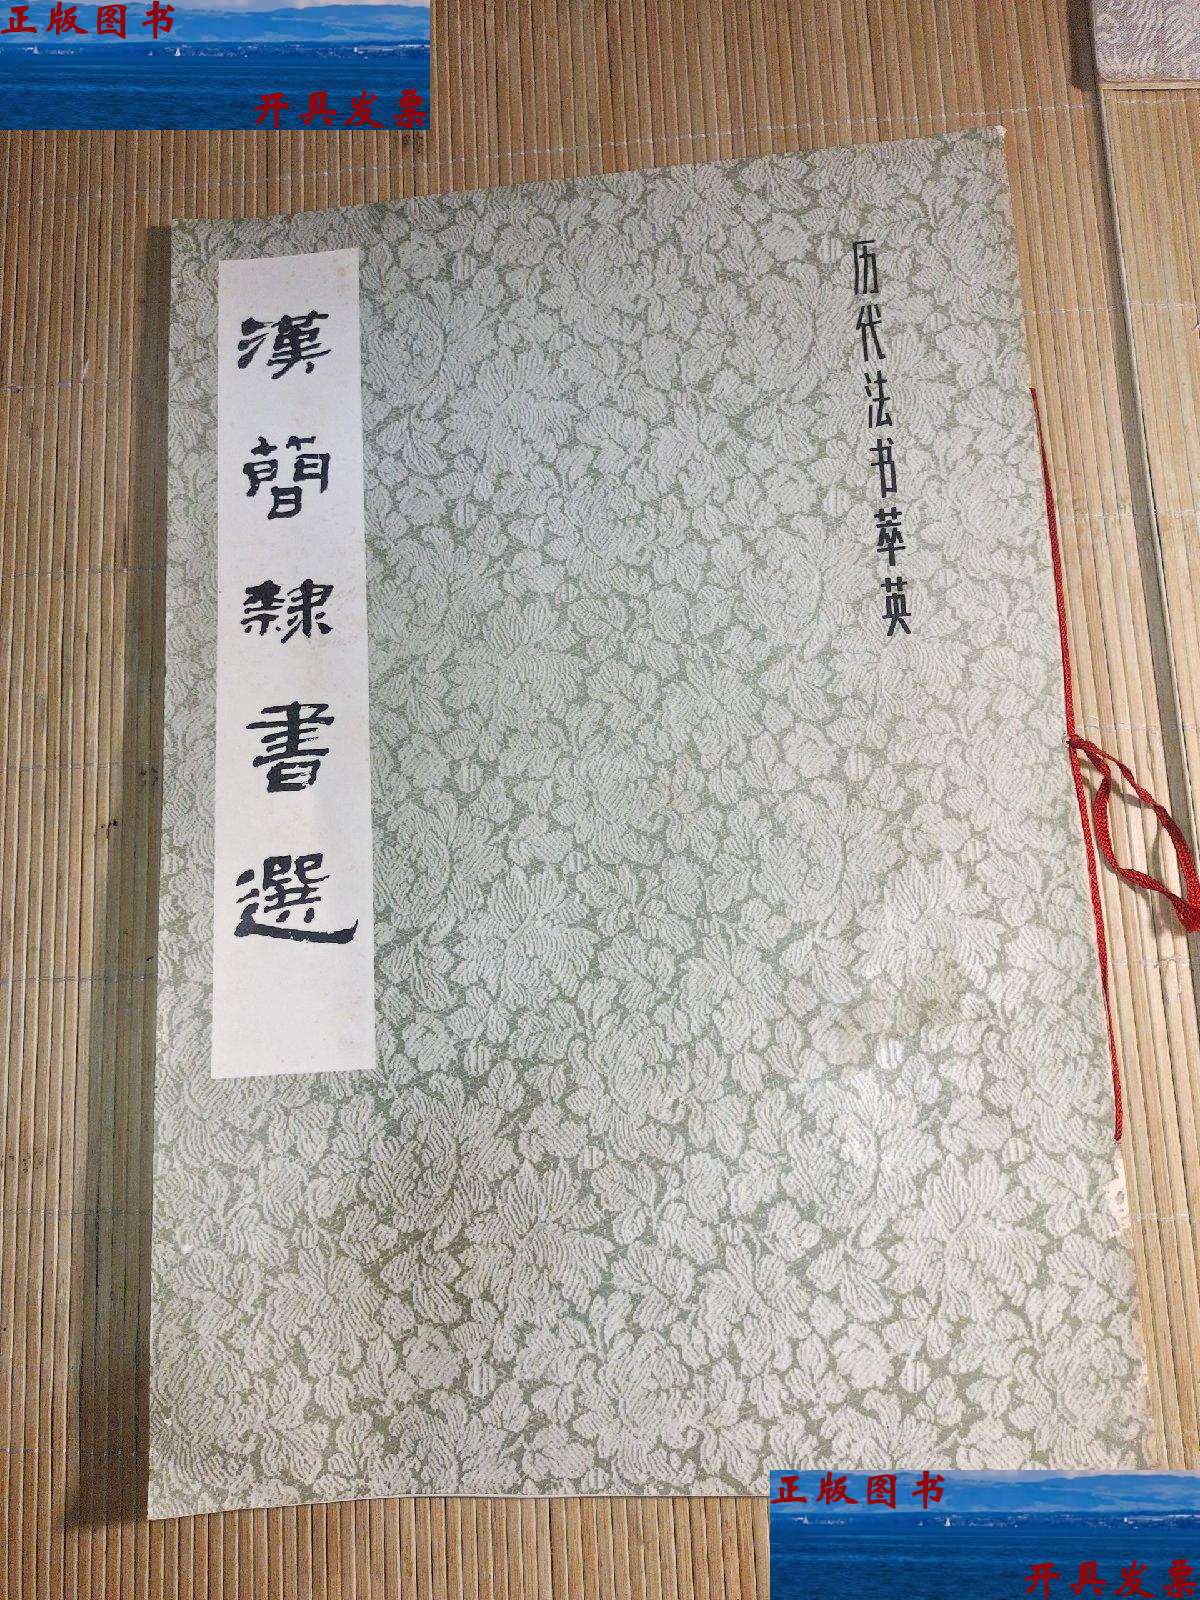 正版图书
开具发票
历代法书萃英
漢簡隸書選
正版图书
开具发票